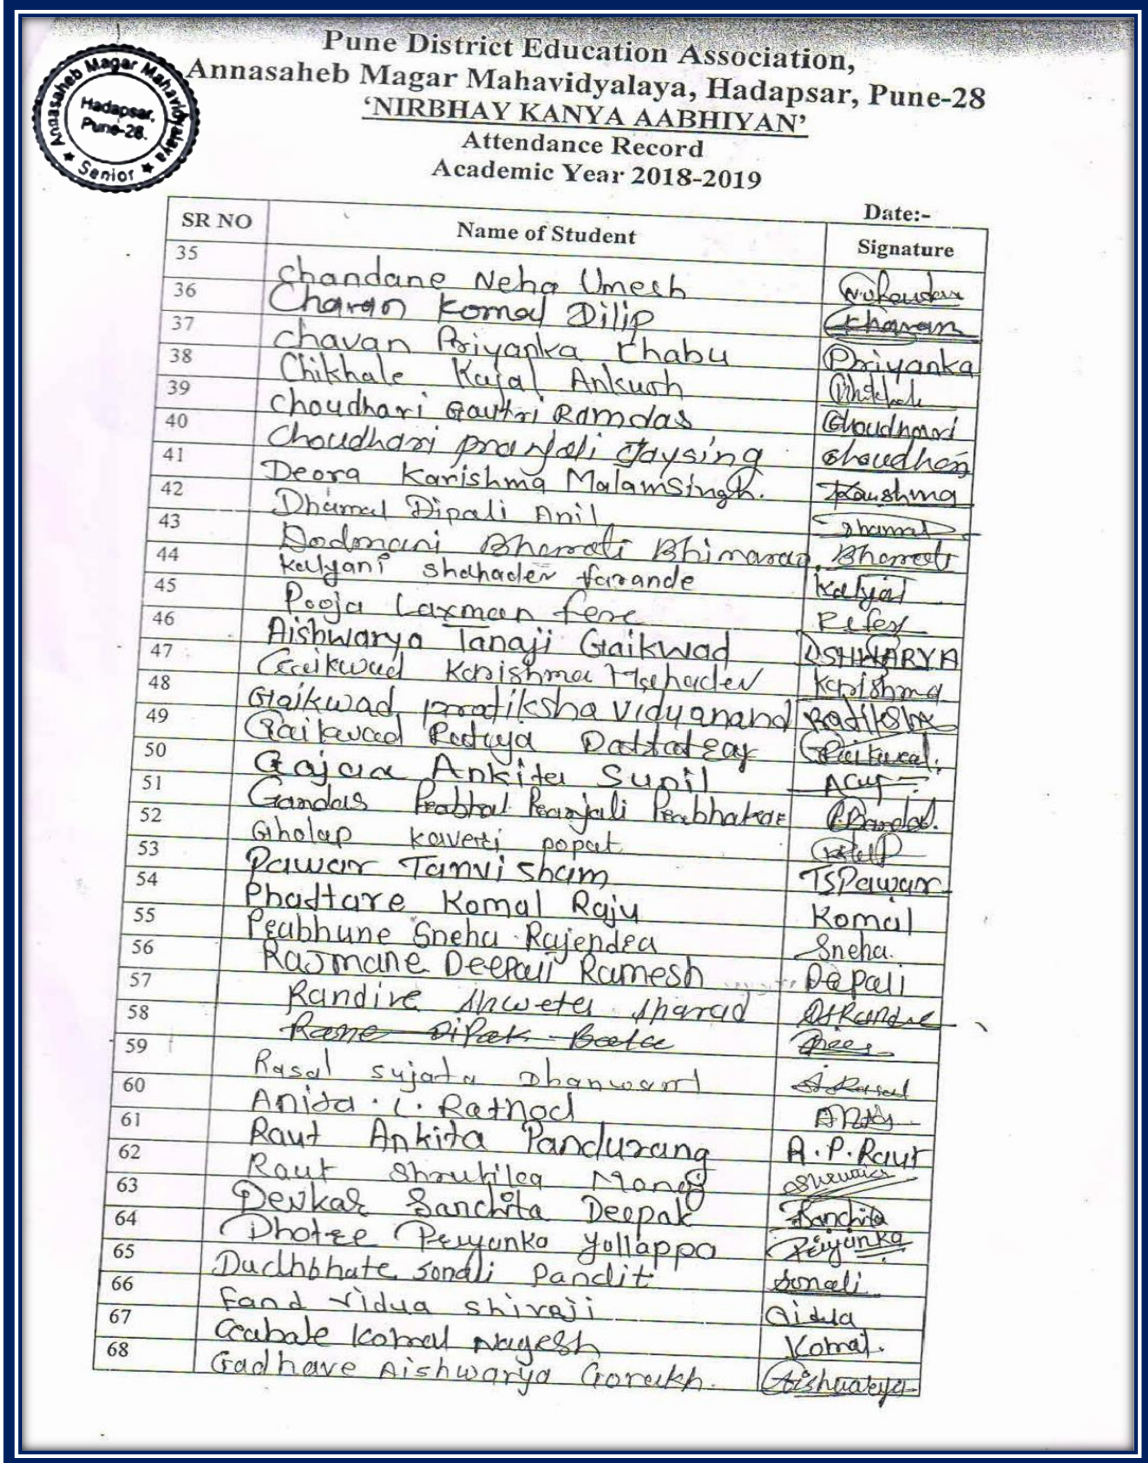 Pune District Education Association,
Annasaheb Magar Mahavidyalaya, Hadapsar, Pune-28
‘NIRBHAY KANYA AABHIYAN’
Attendance Record
Academic Year 2018-2019
Annasaheb Magar Mahavidyalaya
Hadapsar,
Pune-28.
★ Senior ★
Date:-
SR NO Name of Student Signature
35 Chandane Neha Umesh
36 Charan Komal Dilip Charan
37 Chavan Priyanka Khabu Priyanka
38 Chikhale Kajal Ankush
39 Choudhari Gautri Ramdas Choudhari
40 Choudhari Pranjali Jaysing Choudhari
41 Deora Karishma Malamsingh. Karishma
42 Dhamal Dipali Anil Dhamal
43 Dodmani Bharati Bhimarao. Bharati
44 Kalyani Shahadev farande Kalyani
45 Pooja Laxman fere
46 Aishwarya Tanaji Gaikwad AISHWARYA
47 Gaikwad Karishma Mahadev Karishma
48 Gaikwad pratiksha vidyanand Pratiksha
49 Gaikwad Rutuja Dattatray Gaikwad.
50 Gajaa Ankita Sunil
51 Gandas Prabhal Pranjali Prabhakar
52 Gholap kaveri popat
53 Pawar Tanvi Sham TSPawar
54 Phadtare Komal Raju Komal
55 Prabhune Sneha Rajendra Sneha.
56 Rajmane Deepali Ramesh Deepali
57 Randive Shweta Sharad
58 Rane Dipak
59 Rasal Sujata Dhanwant
60 Anita . L. Rathod
61 Raut Ankita Pandurang A.P.Raut
62 Raut Shrutilea Manoj
63 Devkar Sanchita Deepak Sanchita
64 Dhotre Priyanka Yallappa Priyanka
65 Dudhbhate Sonali Pandit Sonali
66 Fand vidya shivaji
67 Komal Nagesh Komal.
68 Gadhave Aishwarya Gorakh. Aishwarya